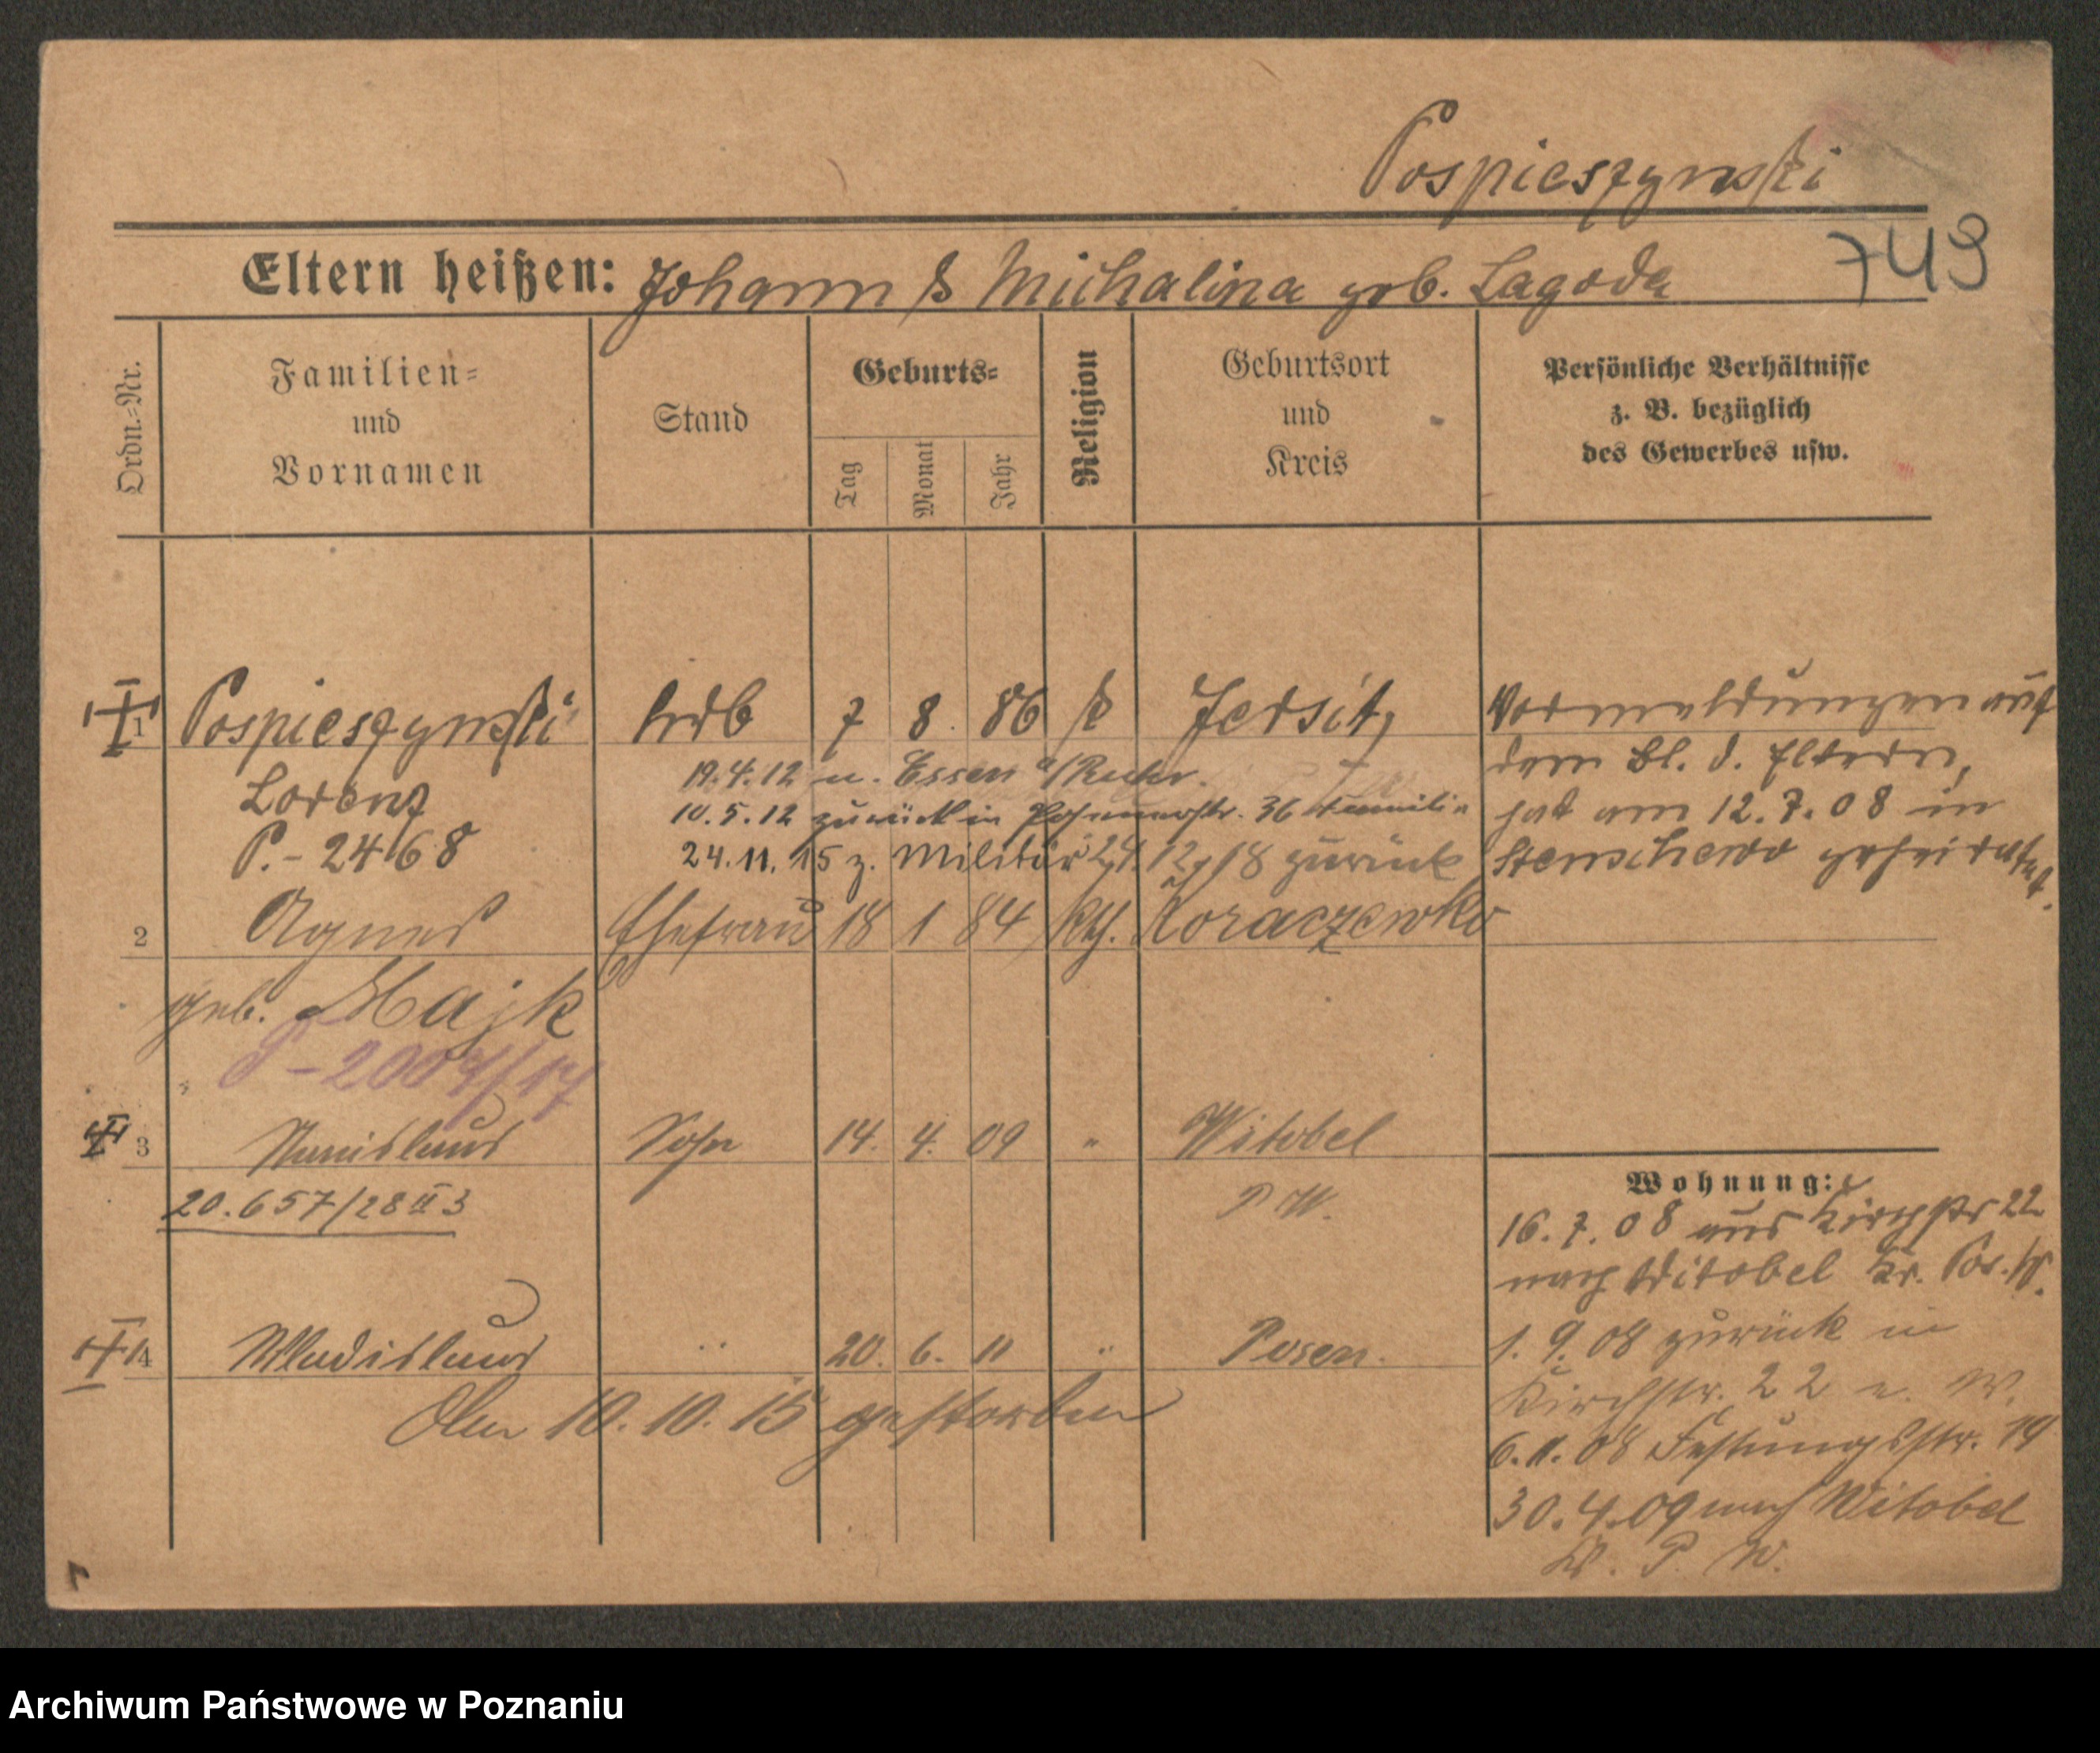 Pospieszynski
749
Eltern heißen: Johann & Michalina geb. Lagoda
Ordn.-Nr.
Familien-
und
Vornamen
Stand
Geburts-
Tag
Monat
Jahr
Religion
Geburtsort
und
Kreis
Persönliche Verhältnisse
z. B. bezüglich
des Gewerbes usw.
1 Pospieszynski Arb 7 8. 86 k Jersitz
Lorenz
P.- 2468
19.4.12 n. Essen a/Ruhr.
10.5.12 zurück in 36 Familie
24.11.15 z. Militär 24.12/18 zurück
Vormeldungen auf
dem Bl. d. Eltern,
hat am 12.7.08 in
Stenschewo geheiratet.
2 Agnes Ehefrau 18 1 84 kth. Koraczewko
geb. Majk
P-2004/17
3 Stanislaus Sohn 14. 4. 09 " Witobel
P W.
20.657/28 II 3
4 Wladislaus " 20. 6. 11 " Posen.
Am 10.10.15 gestorben
Wohnung:
16.7.08 aus Kirchstr 22
nach Witobel Kr. Pos. W.
1.9.08 zurück in
Kirchstr. 22 n. W.
6.11.08 Festungsstr. 19
30.4.09 nach Witobel
Kr. P. W.
Archiwum Państwowe w Poznaniu